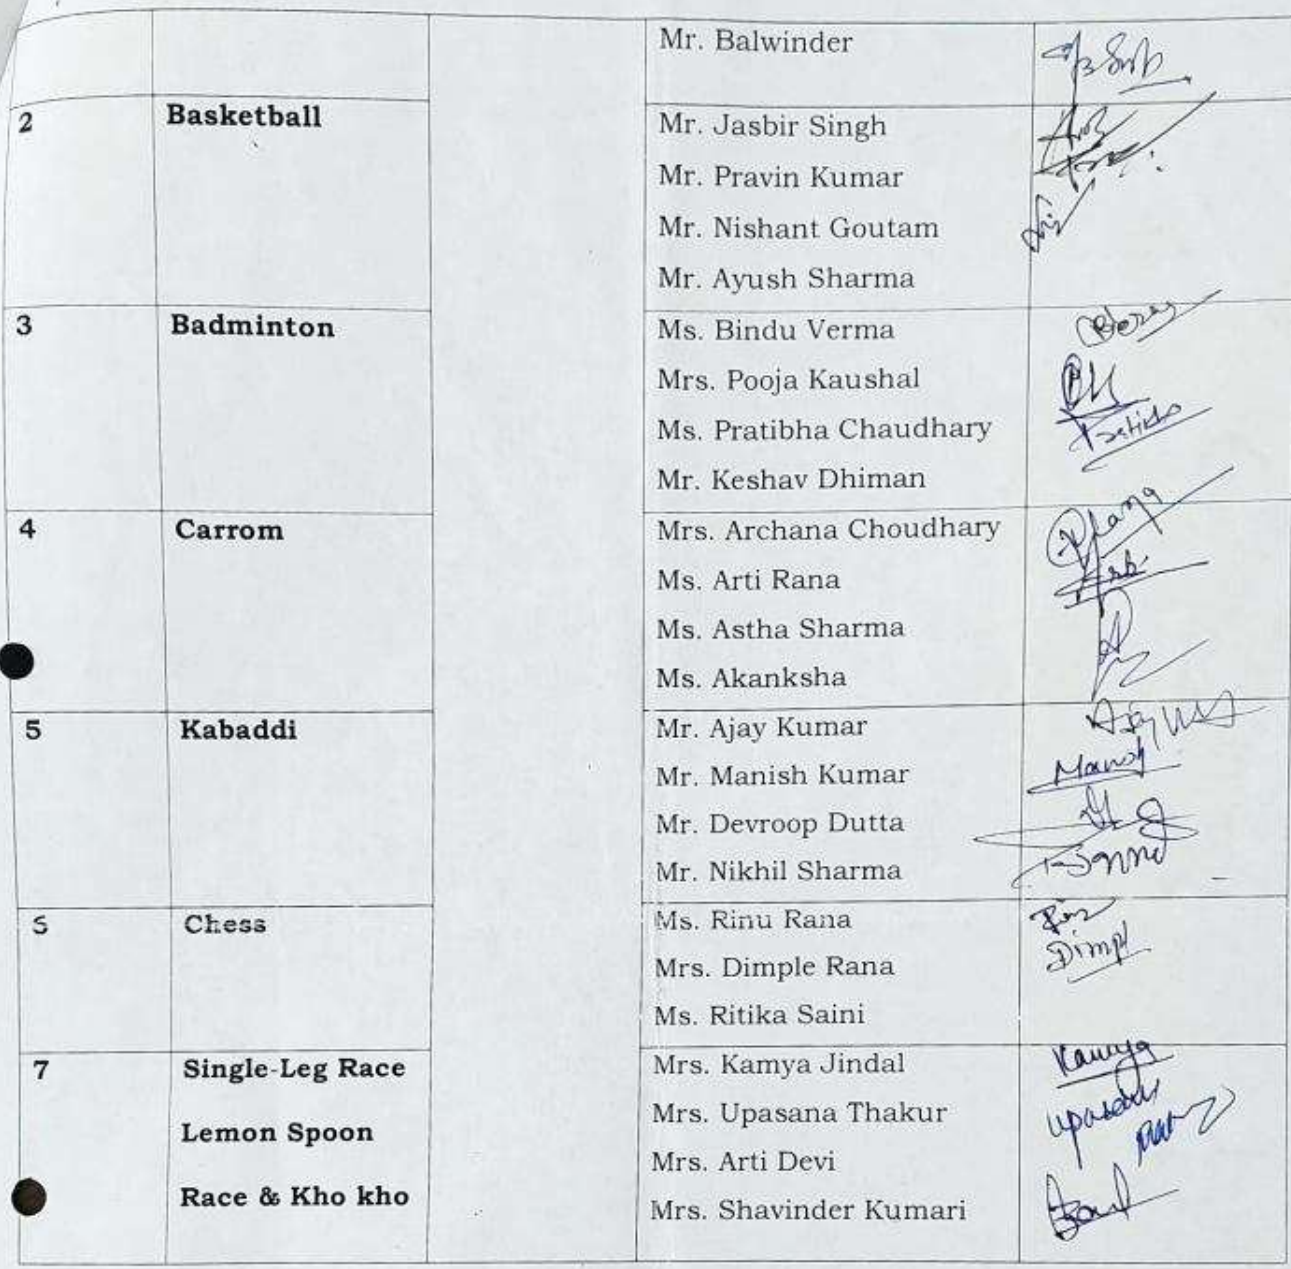 Mr. Balwinder
2 Basketball Mr. Jasbir Singh
Mr. Pravin Kumar
Mr. Nishant Goutam
Mr. Ayush Sharma
3 Badminton Ms. Bindu Verma
Mrs. Pooja Kaushal
Ms. Pratibha Chaudhary
Mr. Keshav Dhiman
4 Carrom Mrs. Archana Choudhary
Ms. Arti Rana
Ms. Astha Sharma
Ms. Akanksha
5 Kabaddi Mr. Ajay Kumar
Mr. Manish Kumar
Mr. Devroop Dutta
Mr. Nikhil Sharma
Chess Ms. Rinu Rana
Mrs. Dimple Rana Dimpl
Ms. Ritika Saini
7 Single-Leg Race Mrs. Kamya Jindal Kamya
Lemon Spoon Mrs. Upasana Thakur
Mrs. Arti Devi
Race & Kho kho Mrs. Shavinder Kumari